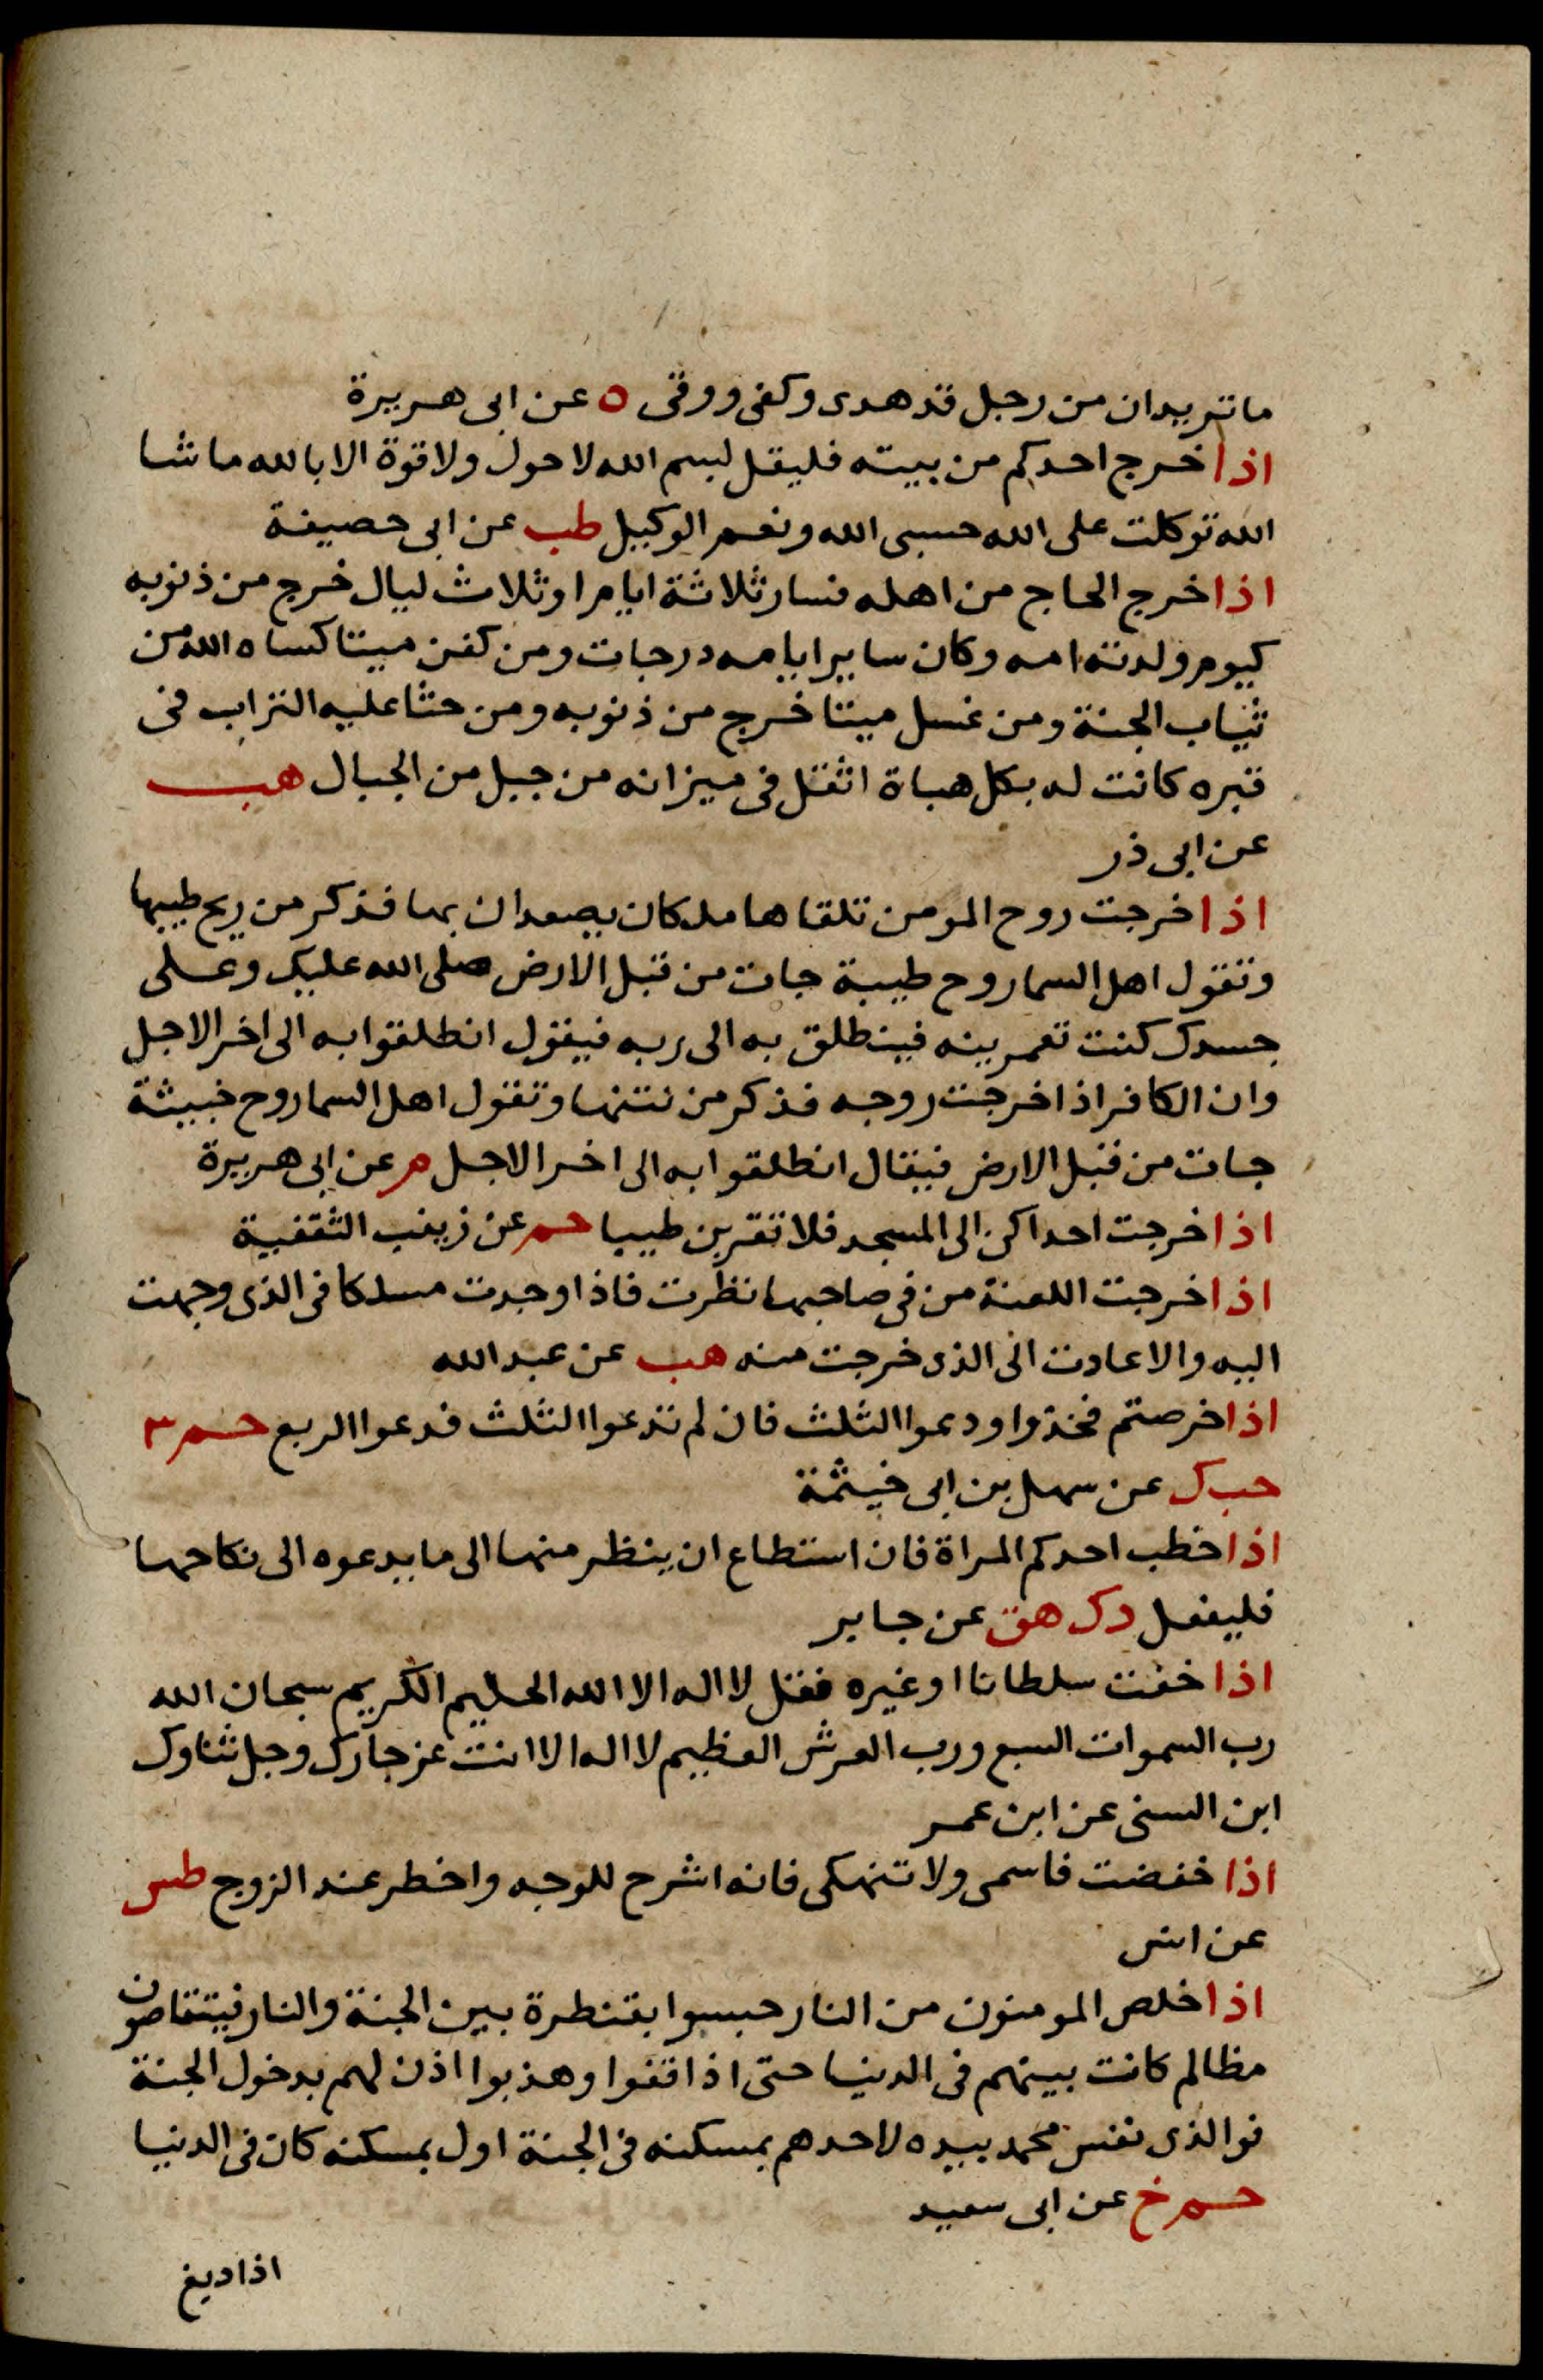 ما تريدان من رجل قد هدى وكفى ووقى ه عن ابى هريرة
اذا خرج احدكم من بيته فليقل لبسم الله لا حول ولا قوة الا بالله ما شا
الله توكلت على الله حسبى الله ونعم الوكيل طب عن ابى حصيفة
اذا خرج الحاج من اهله فسار ثلاثة ايام او ثلاث ليال خرج من ذنوبه
كيوم ولدته امه وكان ساير ايامه درجات ومن كفن ميتا كساه الله من
ثياب الجنة ومن غسل ميتا خرج من ذنوبه ومن حثا عليه التراب فى
قبره كانت له بكل هباة اثقل فى ميزانه من جبل من الجبال هب
عن ابى ذر
اذا خرجت روح المومن تلقاها ملكان يصعدان بها فذكر من ريح طيبها
وتقول اهل السما روح طيبة جات من قبل الارض صلى الله عليك وعلى
جسدك كنت تعمرينه فينطلق به الى ربه فيقول انطلقوا به الى اخر الاجل
وان الكافر اذا خرجت روحه فذكر من نتنها وتقول اهل السما روح خبيثة
جات من قبل الارض فيقال انطلقوا به الى اخر الاجل م عن ابى هريرة
اذا خرجت احداكن الى المسجد فلا تقربن طيبا حم عن زينب الثقفية
اذا خرجت اللعنة من فى صاحبها نظرت فاذا وجدت مسلكا فى الذى وجهت
اليه والا عادت الى الذى خرجت منه هب عن عبد الله
اذا خرصتم فخذوا ودعوا الثلث فان لم تدعوا الثلث فدعوا الربع حم ٣
حب ك عن سهل بن ابى خيثمة
اذا خطب احدكم المراة فان استطاع ان ينظر منها الى ما يدعوه الى نكاحها
فليفعل د ك هق عن جابر
اذا خفت سلطانا او غيره فقل لا اله الا الله الحليم الكريم سبحان الله
رب السموات السبع ورب العرش العظيم لا اله الا انت عز جارك وجل ثناوك
ابن السنى عن ابن عمر
اذا خفضت فاسمى ولا تنهكى فانه اشرح للوجه واخطر عند الزوج طس
عن انس
اذا خلص المومنون من النار حبسوا بقنطرة بين الجنة والنار فيتقاصون
مظالم كانت بينهم فى الدنيا حتى اذا قفوا وهذبوا اذن لهم بدخول الجنة
فوالذى نفس محمد بيده لاحدهم بمسكنه فى الجنة اول بمسكنه كان فى الدنيا
حم خ عن ابى سعيد
اذا ديغ